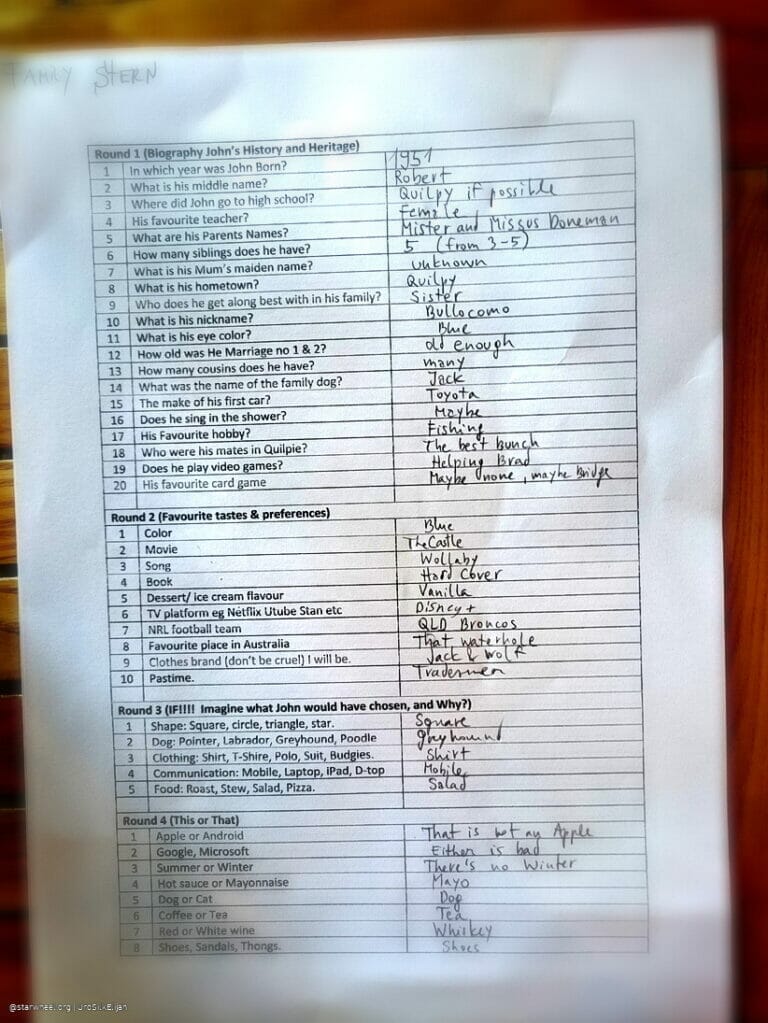 FAMILY STERN
Round 1 (Biography John's History and Heritage)
1 In which year was John Born? 1951
2 What is his middle name? Robert
3 Where did John go to high school? Quilpy if possible
4 His favourite teacher? female
5 What are his Parents Names? Mister and Missus Doneman
6 How many siblings does he have? 5 (from 3-5)
7 What is his Mum's maiden name? unknown
8 What is his hometown? Quilpy
9 Who does he get along best with in his family? Sister
10 What is his nickname? Bullocomo
11 What is his eye color? Blue
12 How old was He Marriage no 1 & 2? old enough
13 How many cousins does he have? many
14 What was the name of the family dog? Jack
15 The make of his first car? Toyota
16 Does he sing in the shower? Maybe
17 His Favourite hobby? Fishing
18 Who were his mates in Quilpie? The best bunch
19 Does he play video games? Helping Brad
20 His favourite card game Maybe none, maybe Bridge
Round 2 (Favourite tastes & preferences)
1 Color Blue
2 Movie The Castle
3 Song Wollaby
4 Book Hard Cover
5 Dessert/ ice cream flavour Vanilla
6 TV platform eg Netflix Utube Stan etc Disney+
7 NRL football team QLD Broncos
8 Favourite place in Australia That waterhole
9 Clothes brand (don't be cruel) I will be. Jack & Wolf
10 Pastime. Tradesmen
Round 3 (IF!!!! Imagine what John would have chosen, and Why?)
1 Shape: Square, circle, triangle, star. Square
2 Dog: Pointer, Labrador, Greyhound, Poodle greyhound
3 Clothing: Shirt, T-Shire, Polo, Suit, Budgies. Shirt
4 Communication: Mobile, Laptop, IPad, D-top Mobile
5 Food: Roast, Stew, Salad, Pizza. Salad
Round 4 (This or That)
1 Apple or Android That is not an Apple
2 Google, Microsoft Either is bad
3 Summer or Winter There's no Winter
4 Hot sauce or Mayonnaise Mayo
5 Dog or Cat Dog
6 Coffee or Tea Tea
7 Red or White wine Whiskey
8 Shoes, Sandals, Thongs. Shoes